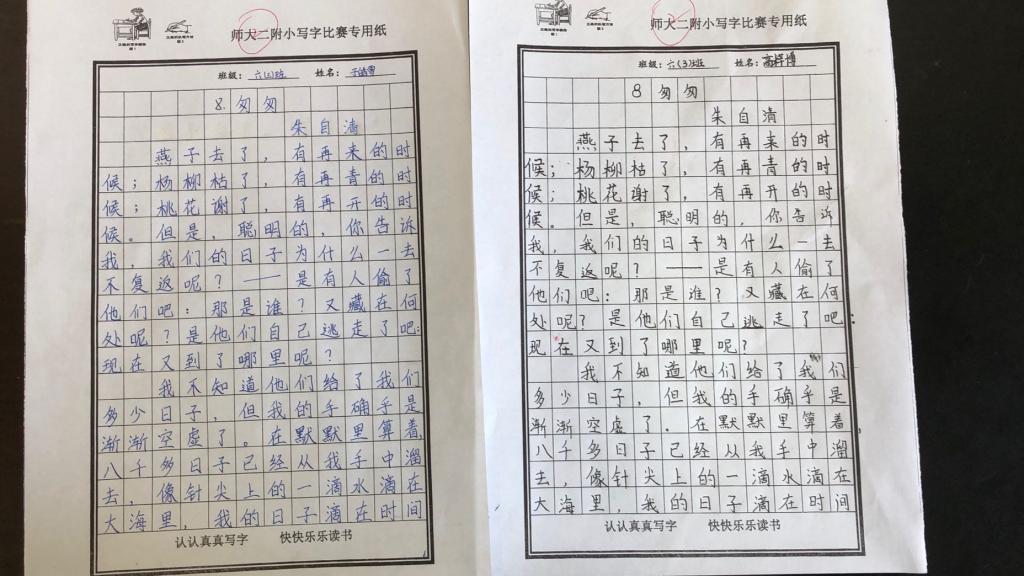 师大二附小写字比赛专用纸
班级：六(2)班 姓名：
8.匆匆
朱自清
燕子去了，有再来的时
候；杨柳枯了，有再青的时
候；桃花谢了，有再开的时
候。但是，聪明的，你告诉
我，我们的日子为什么一去
不复返呢？——是有人偷了
他们吧：那是谁？又藏在何
处呢？是他们自己逃走了吧：
现在又到了哪里呢？
我不知道他们给了我们
多少日子，但我的手确乎是
渐渐空虚了。在默默里算着，
八千多日子已经从我手中溜
去，像针尖上的一滴水滴在
大海里，我的日子滴在时间
认认真真写字 快快乐乐读书
师大二附小写字比赛专用纸
班级：六(3)班 姓名：高梓博
8 匆匆
朱自清
燕子去了，有再来的时
候；杨柳枯了，有再青的时
候；桃花谢了，有再开的时
候。但是，聪明的，你告诉
我，我们的日子为什么一去
不复返呢？——是有人偷了
他们吧：那是谁？又藏在何
处呢？是他们自己逃走了吧：
现在又到了哪里呢？
我不知道他们给了我们
多少日子，但我的手确乎是
渐渐空虚了。在默默里算着，
八千多日子已经从我手中溜
去，像针尖上的一滴水滴在
大海里，我的日子滴在时间
认认真真写字 快快乐乐读书